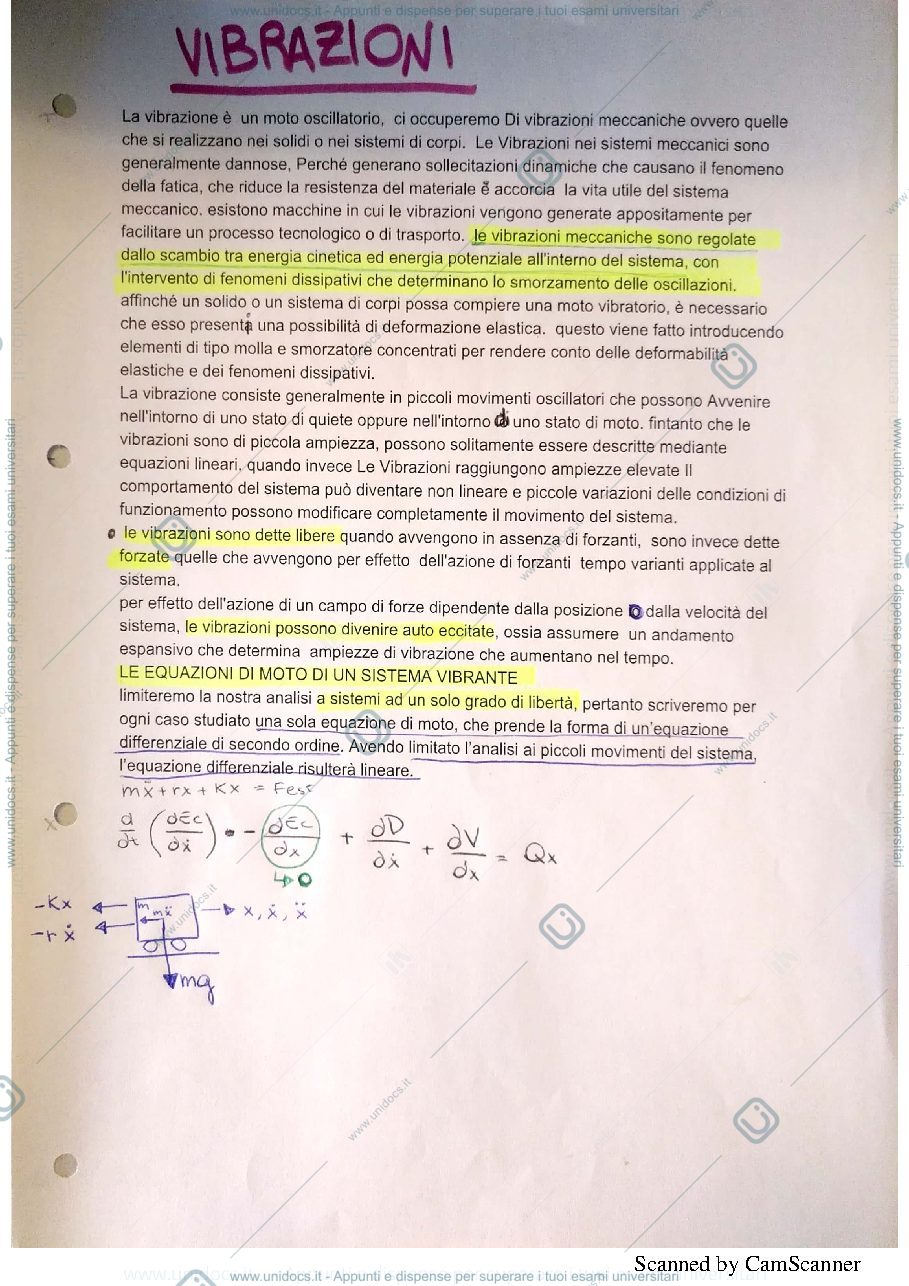 www.unidocs.it - Appunti e dispense per superare i tuoi esami universitari
VIBRAZIONI
La vibrazione è un moto oscillatorio, ci occuperemo Di vibrazioni meccaniche ovvero quelle
che si realizzano nei solidi o nei sistemi di corpi. Le Vibrazioni nei sistemi meccanici sono
generalmente dannose, Perché generano sollecitazioni dinamiche che causano il fenomeno
della fatica, che riduce la resistenza del materiale e accorcia la vita utile del sistema
meccanico. esistono macchine in cui le vibrazioni vengono generate appositamente per
facilitare un processo tecnologico o di trasporto. le vibrazioni meccaniche sono regolate
dallo scambio tra energia cinetica ed energia potenziale all'interno del sistema, con
l'intervento di fenomeni dissipativi che determinano lo smorzamento delle oscillazioni.
affinché un solido o un sistema di corpi possa compiere una moto vibratorio, è necessario
che esso presenti una possibilità di deformazione elastica. questo viene fatto introducendo
elementi di tipo molla e smorzatore concentrati per rendere conto delle deformabilità
elastiche e dei fenomeni dissipativi.
La vibrazione consiste generalmente in piccoli movimenti oscillatori che possono Avvenire
nell'intorno di uno stato di quiete oppure nell'intorno di uno stato di moto. fintanto che le
vibrazioni sono di piccola ampiezza, possono solitamente essere descritte mediante
equazioni lineari. quando invece Le Vibrazioni raggiungono ampiezze elevate Il
comportamento del sistema può diventare non lineare e piccole variazioni delle condizioni di
funzionamento possono modificare completamente il movimento del sistema.
• le vibrazioni sono dette libere quando avvengono in assenza di forzanti, sono invece dette
forzate quelle che avvengono per effetto dell'azione di forzanti tempo varianti applicate al
sistema.
per effetto dell'azione di un campo di forze dipendente dalla posizione o dalla velocità del
sistema, le vibrazioni possono divenire auto eccitate, ossia assumere un andamento
espansivo che determina ampiezze di vibrazione che aumentano nel tempo.
LE EQUAZIONI DI MOTO DI UN SISTEMA VIBRANTE
limiteremo la nostra analisi a sistemi ad un solo grado di libertà, pertanto scriveremo per
ogni caso studiato una sola equazione di moto, che prende la forma di un'equazione
differenziale di secondo ordine. Avendo limitato l'analisi ai piccoli movimenti del sistema,
l'equazione differenziale risulterà lineare.
mẍ + rẋ + Kx = Fest
d/dt (∂Ec/∂ẋ) - ∂Ec/∂x + ∂D/∂ẋ + ∂V/∂x = Qx
↳ 0
-Kx
m mẍ
x, ẋ, ẍ
-rẋ
mg
Scanned by CamScanner
www.unidocs.it - Appunti e dispense per superare i tuoi esami universitari